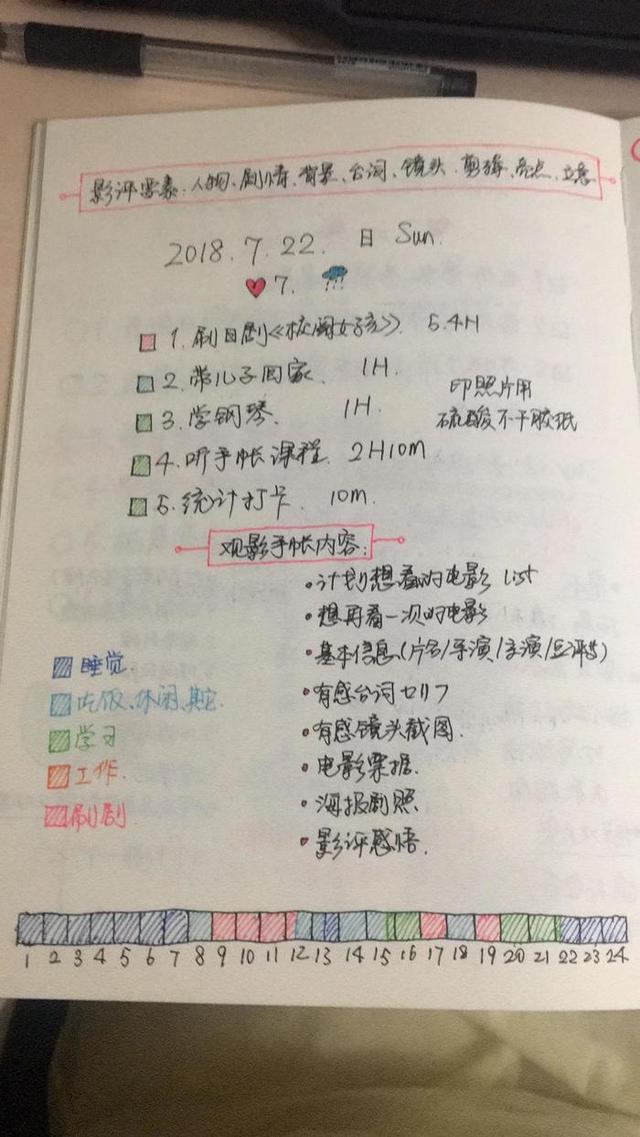 影评要素:人物、剧情、背景、台词、镜头、剪辑、亮点、立意
2018.7.22. 日 Sun.
7.
1.刷日剧《校阅女孩》. 5.4H
2.带儿子回家. 1H.
3.学钢琴. 1H.
4.听手帐课程. 2H10m
5.统计打卡. 10m.
印照片用
硫酸不干胶纸
观影手帐内容:
•计划想看的电影 list
•想再看一次的电影
•基本信息(片名/导演/主演/豆评等)
•有感台词セリフ
•有感镜头截图.
•电影票据.
•海报剧照.
•影评感悟.
睡觉
吃饭、休闲、其它.
学习
工作.
刷剧
1 2 3 4 5 6 7 8 9 10 11 12 13 14 15 16 17 18 19 20 21 22 23 24